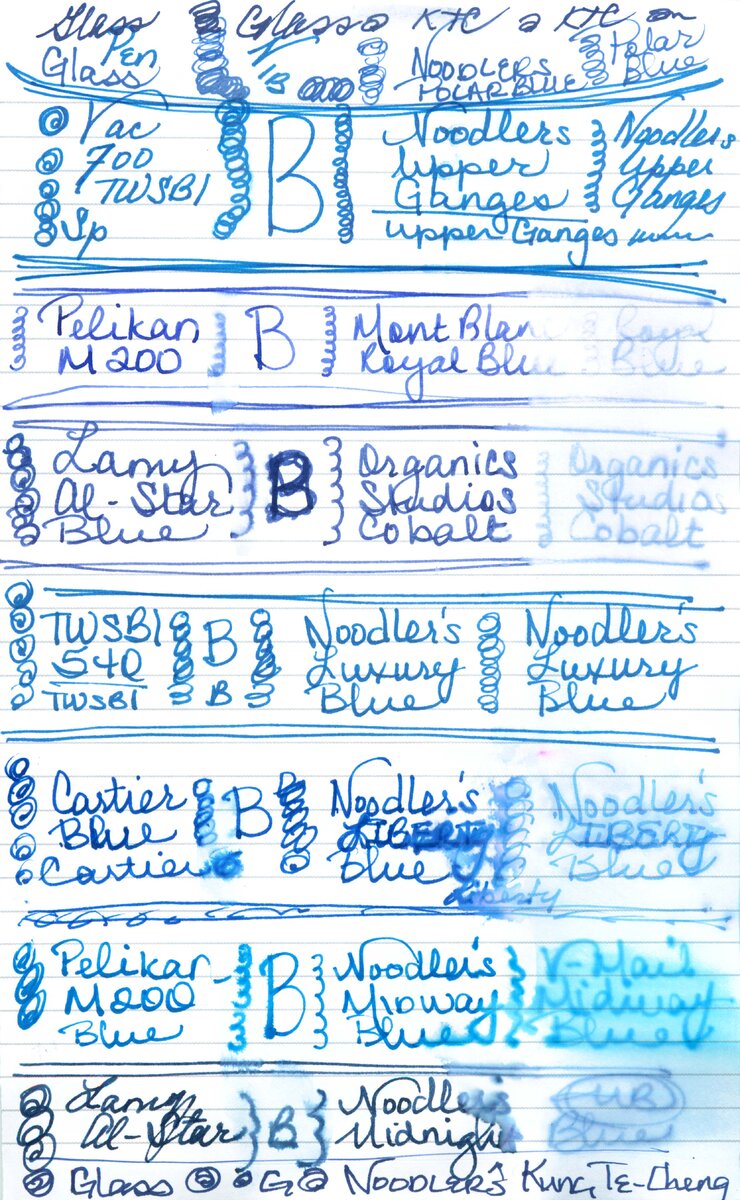 Glass Glass KTC KTC
Pen
Glass NIB NOODLERS POLAR BLUE Polar Blue
Vac Noodlers Noodlers
700 B Upper Upper
TWSBI Ganges Ganges
Upper Ganges
Pelikan B Mont Blanc Royal
M200 Royal Blue Blue
Lamy B Organics Organics
Al-Star Studios Studios
Blue Cobalt Cobalt
TWSBI B Noodler's Noodler's
540 Luxury Luxury
TWSBI B Blue Blue
Cartier B Noodler's Noodler's
Blue LIBERTY LIBERTY
Cartier Blue Blue
Liberty
Pelikan B Noodler's V-Mail
M200 Midway Midway
Blue Blue Blue
Lamy B Noodler's
Al-Star Midnight Blue
Glass G NOODLERS Kung Te-Cheng